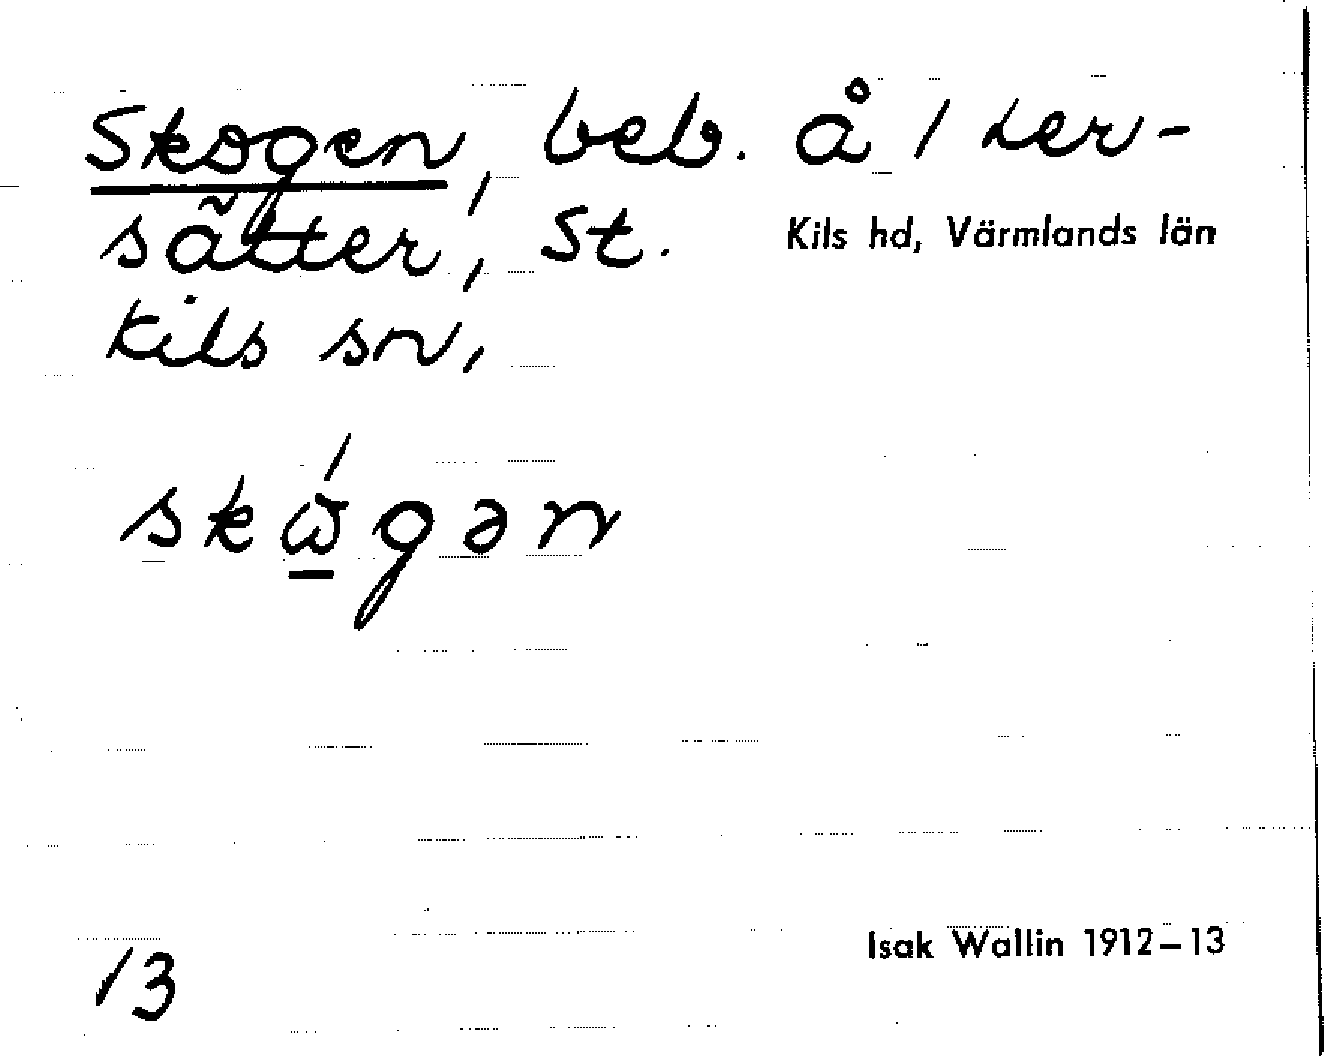 Skogen, beb. å 1 Ler-
sätter, St.
Kils hd, Värmlands län
Kils sn,
skώ̲gən
13
Isak Wallin 1912–13